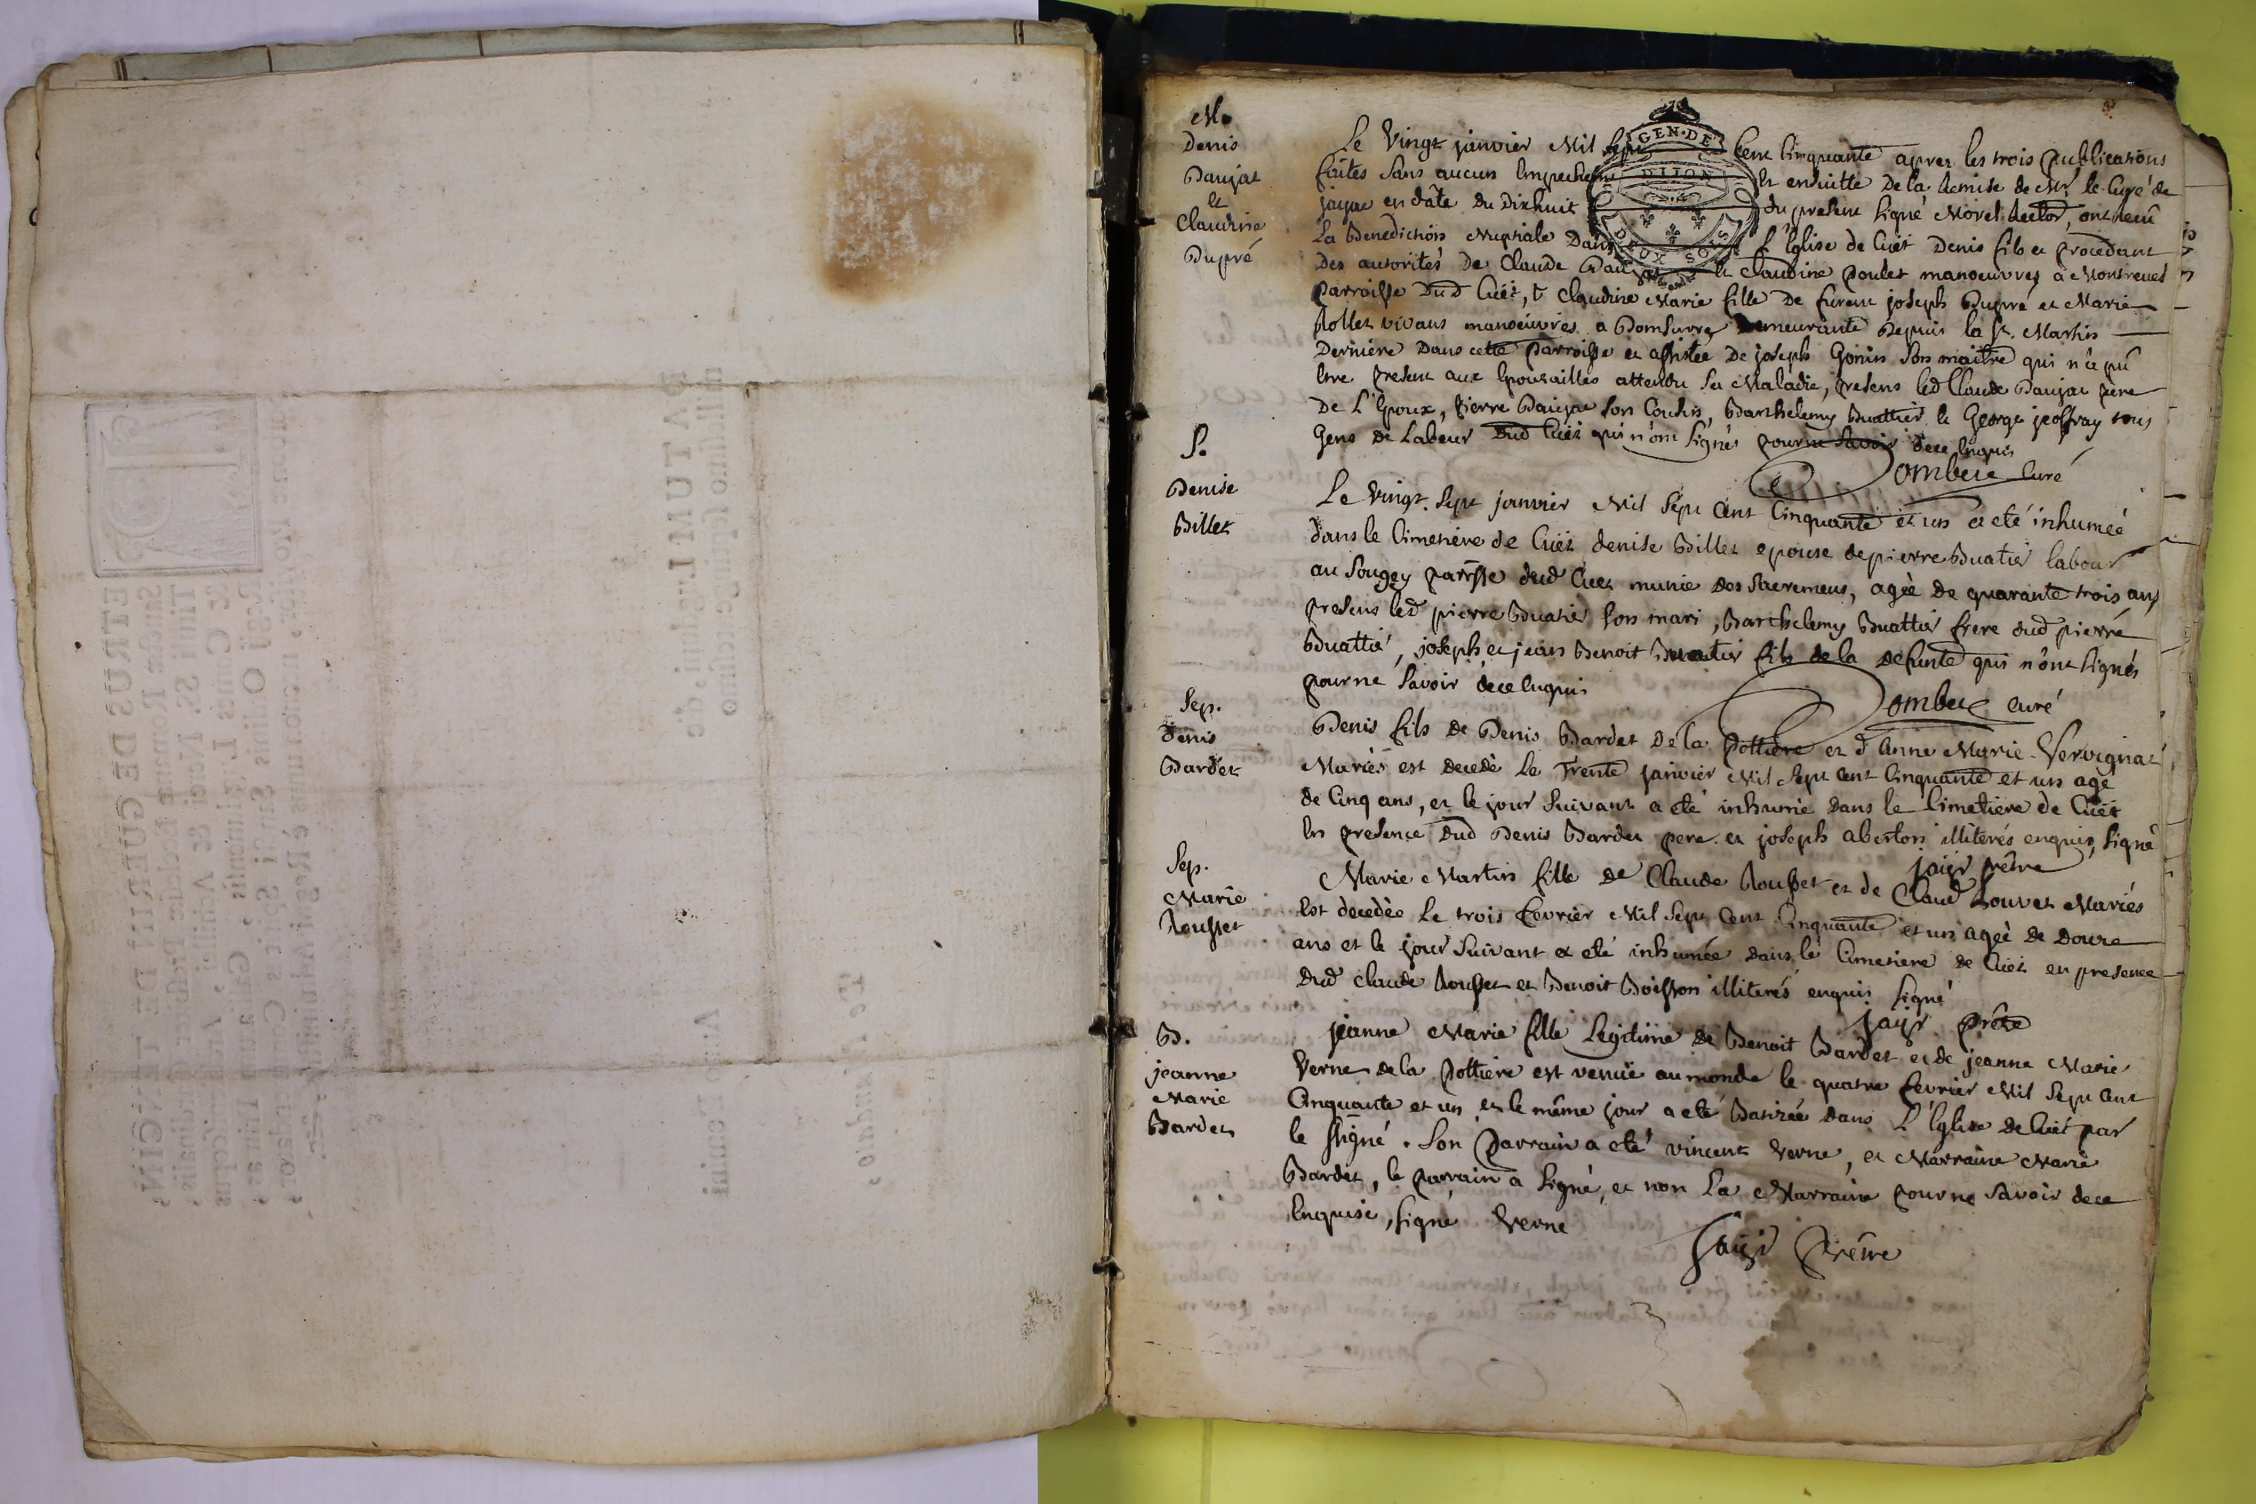 M.
Denis
Daujat
et
Claudine
Dupré
GEN·DE
DIJON
DEUX SOLS
Le Vingt janvier Mil Sept Cent Cinquante apres les trois publications
faites Sans aucun Empechem et ensuitte De la Remise de Mr le Curé de
jayac en date du Dixhuit du present Signé Morel Rector, ont receu
La Benediction Nuptiale Dans L'Eglise de Cuet Denis fils et procedant
Des autorités De Claude Dau et Claudine poulet manoeuvres a Montrevel
parroisse Dud Cuet, et Claudine Marie fille De furent joseph Dupré et Marie
Rollet vivans manoeuvres a Domsurre Demeurante Depuis la St. Martin
Derniere Dans cette parroisse et assistée De joseph Gonin Son maitre qui n'a pû
Etre present aux Epousailles attendu Sa Maladie, presens led Claude Daujat pere
De L'Epoux, Pierre Daujat Son Cousin, Barthelemy Buattier et George jeoffray tous
Gens de Labeur Dud Cuet qui n'ont Signés pour ne Savoir dece Enquis
Dombeie Curé
S.
Denise
Billet
Le Vingt Sept janvier Mil Sept Cent Cinquante et un a eté inhumée
dans le Cimetiere de Cuet denise Billet epouse de pierre Buatier labour
au Sougey parrsse dud Cuet munie des Sacremens, agée de quarante trois ans
presens led pierre Buatier Son mari, Barthelemy Buattier frere dud pierre
Buattier, joseph et jean Benoit Buatier fils de la defunte qui n'ont Signés
pour ne Savoir dece Enquis
Dombeie curé
Sep.
Denis
Bardet
Denis fils de Denis Bardet De la Pottiere et d'Anne Marie Vervignat
Mariés est decedé Le Trente janvier Mil Sept Cent Cinquante et un agé
de Cinq ans, et le jour Suivant a eté inhumé dans le Cimetiere de Cuet
En presence Dud Denis Bardet pere et joseph aberton illiterés enquis, Signé
jayr prêtre
Sep.
Marie
Rousset
Marie Martin fille de Claude Rousset et de Claud Louvet Mariés
Est decedée Le trois fevrier Mil Sept Cent Cinquante et un agée de douze
ans et le jour Suivant a eté inhumée dans le Cimetiere de Cuet en presence
Dud Claude Rousset et Benoit Boisson illiterés enquis Signé
jayr prêtre
B.
jeanne
Marie
Bardet
jeanne Marie fille Legitime de Benoit Bardet et de jeanne Marie
Verne de la Pottiere est venuë au monde le quatre fevrier Mil Sept Cent
Cinquante et un et le même jour a eté Batizée dans L'Eglise de Cuet par
le ssigné. Son Parrain a eté vincent Verne, et Marraine Marie
Bardet, le parrain a Signé, et non La Marraine pour ne Savoir dece
Enquise, Signé Verne
jayr Prêtre